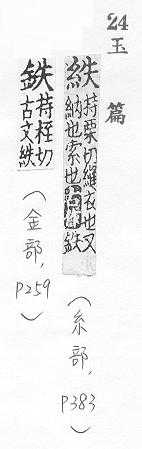 24
玉篇
紩
持栗切縫衣也又
納也索也鉄
(糸部,P383)
鉄
持桎切
古文紩
(金部,P259)